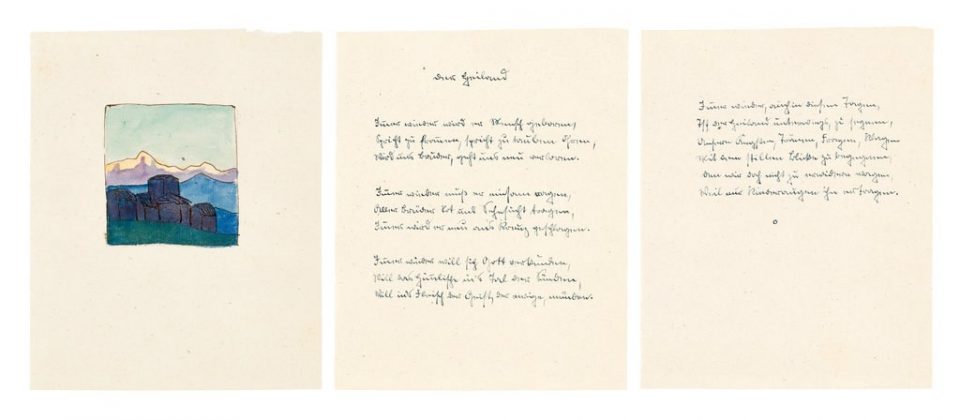 Der Heiland
Immer wieder wird er Mensch geboren,
Spricht zu frommen, spricht zu tauben Ohren,
Wird uns Bruder, geht uns neu verloren.
Immer wieder muß er einsam ragen,
Aller Brüder Not und Sehnsucht tragen,
Immer wird er neu ans Kreuz geschlagen.
Immer wieder will sich Gott verkünden,
Will das Himmlische ins Tal der Sünden,
Will ins Fleisch der Geist, der ewige, münden.
Immer wieder, auch in diesen Tagen,
Ist der Heiland unterwegs, zu segnen,
Unsern Ängsten, Tränen, Fragen, Klagen
Mit dem stillen Blicke zu begegnen,
Den wir doch nicht zu erwidern wagen,
Weil nur Kinderaugen ihn ertragen.